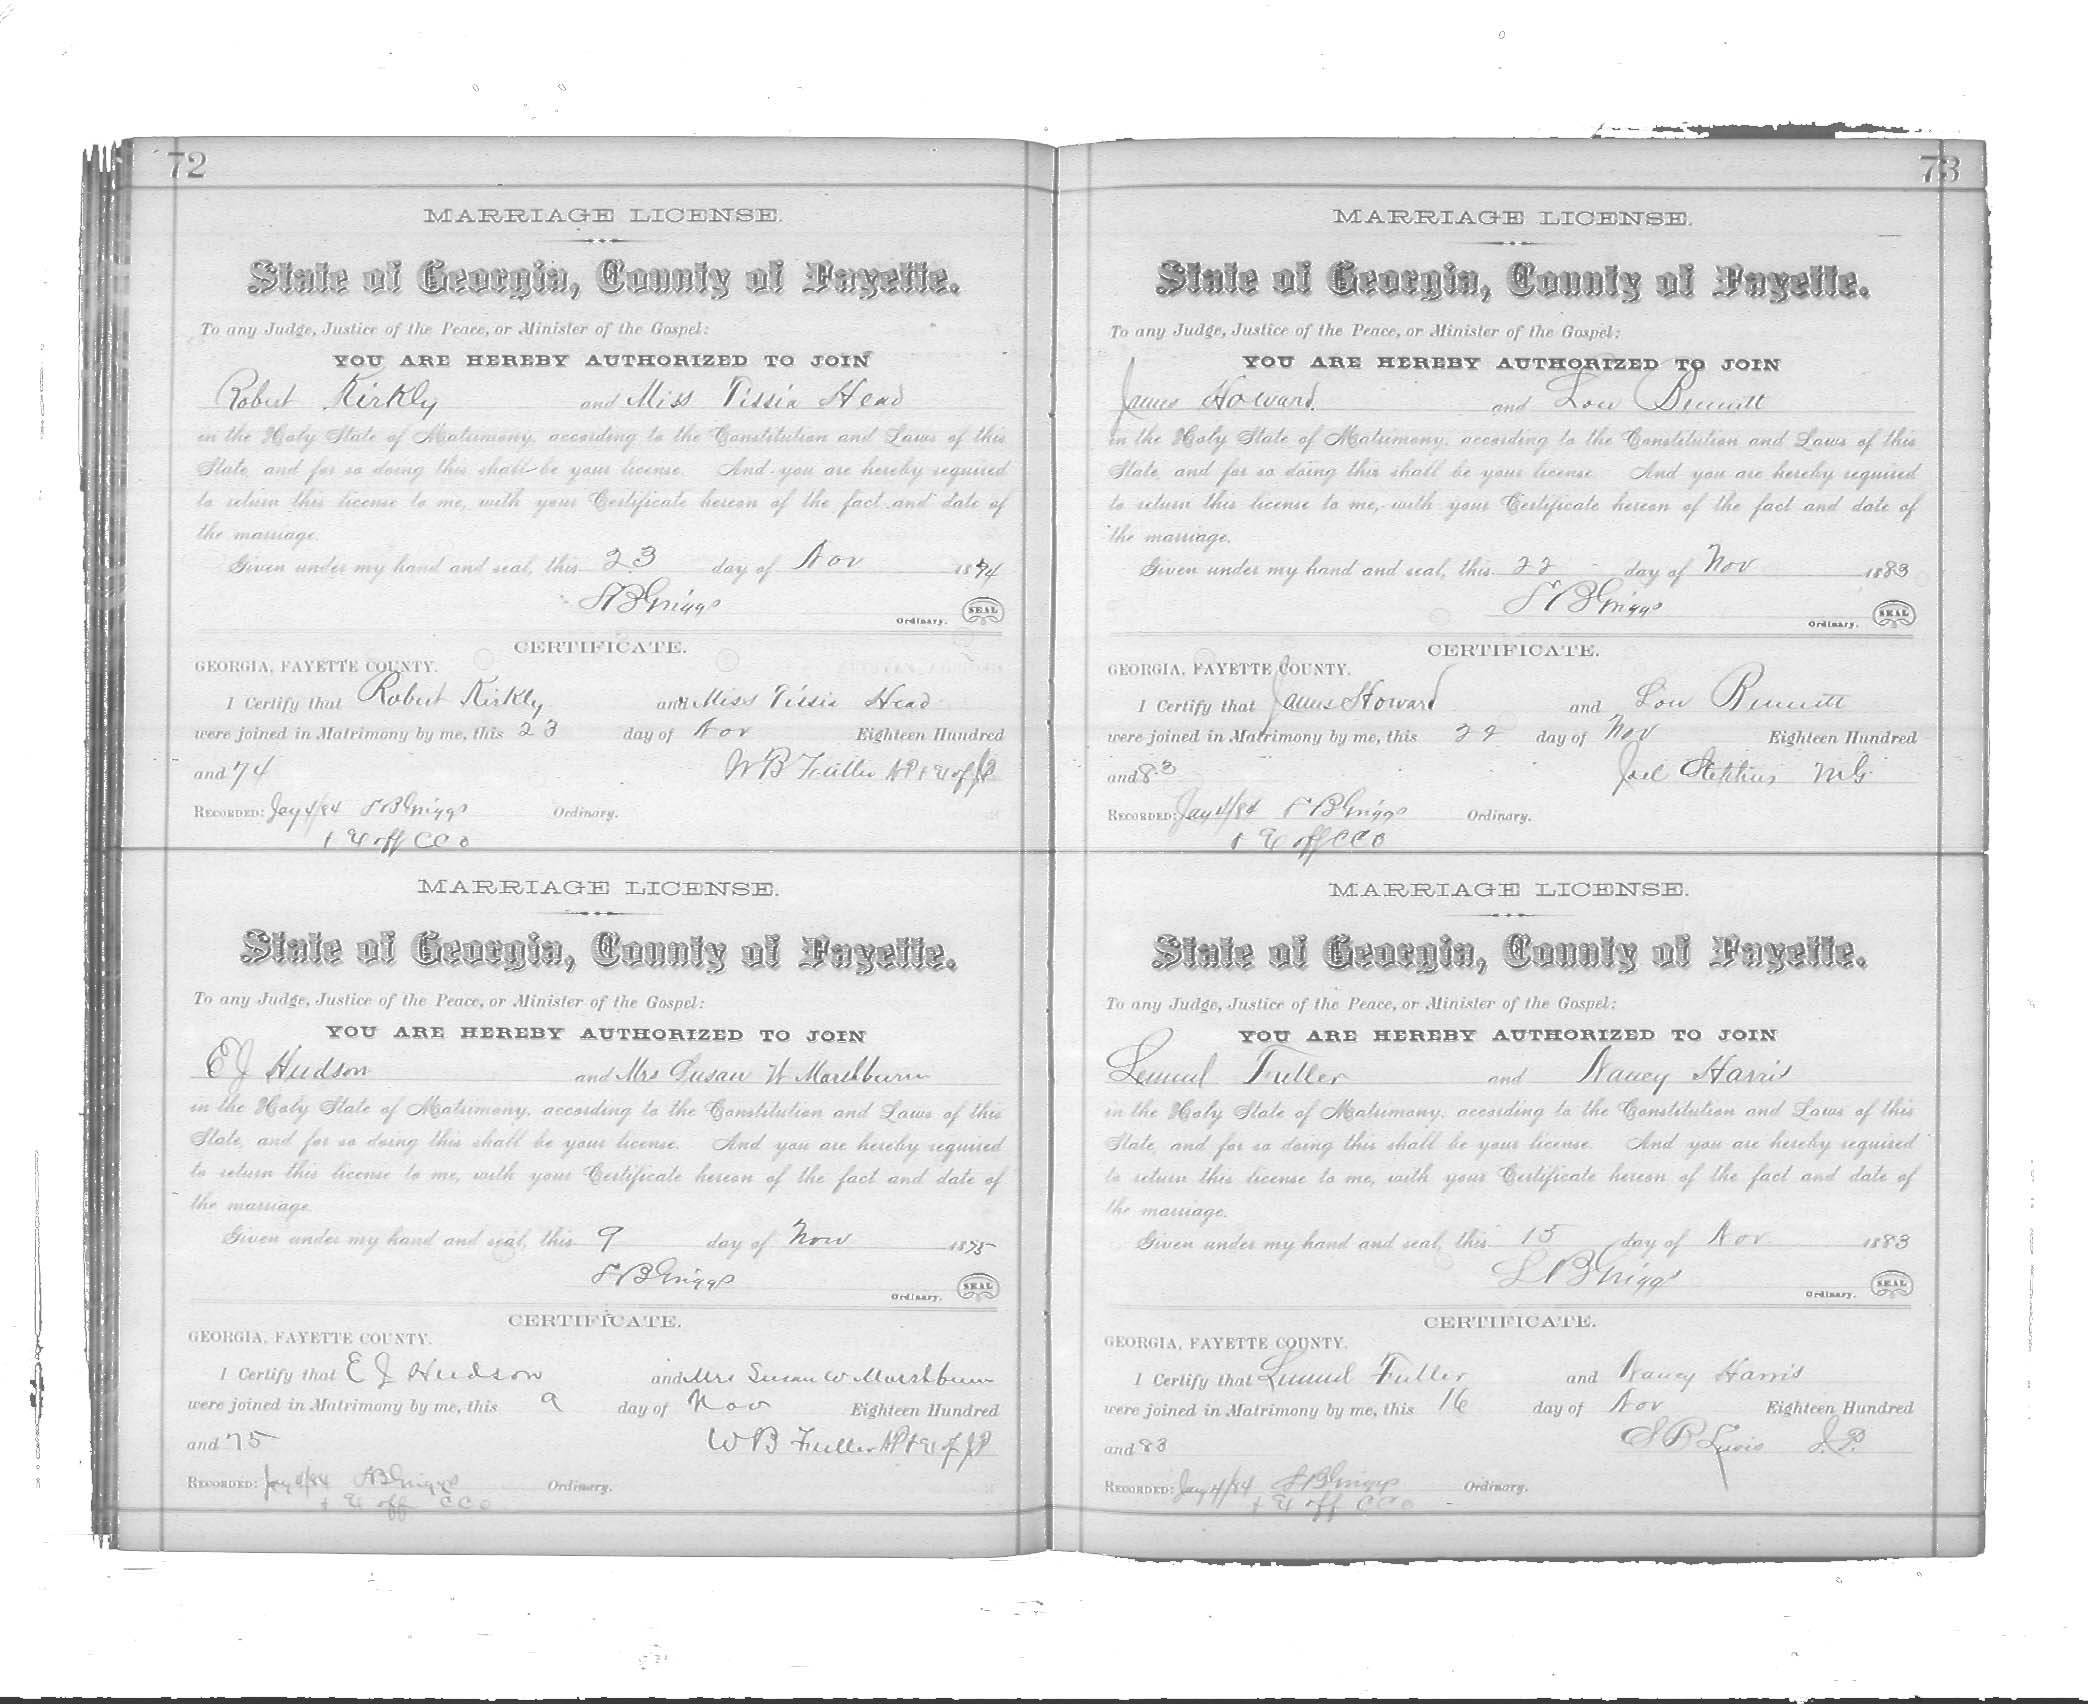 72
MARRIAGE LICENSE.
State of Georgia, County of Fayette.
To any Judge, Justice of the Peace, or Minister of the Gospel:
YOU ARE HEREBY AUTHORIZED TO JOIN
Robert Kirkly and Miss Tissia Head
in the Holy State of Matrimony, according to the Constitution and Laws of this
State, and for so doing this shall be your license. And you are hereby required
to return this license to me, with your Certificate hereon of the fact and date of
the marriage.
Given under my hand and seal, this 23 day of Nov 1874
S B Griggs
Ordinary. SEAL
CERTIFICATE.
GEORGIA, FAYETTE COUNTY.
I Certify that Robert Kirkly and Miss Tissia Head
were joined in Matrimony by me, this 23 day of Nov Eighteen Hundred
and 74 W B Fuller NP & Ex of JP
RECORDED: Jay 4/84 S B Griggs Ordinary.
& Ex off C C O
MARRIAGE LICENSE.
State of Georgia, County of Fayette.
To any Judge, Justice of the Peace, or Minister of the Gospel:
YOU ARE HEREBY AUTHORIZED TO JOIN
E J Hudson and Mrs Susan W Marshburn
in the Holy State of Matrimony, according to the Constitution and Laws of this
State, and for so doing this shall be your license. And you are hereby required
to return this license to me, with your Certificate hereon of the fact and date of
the marriage.
Given under my hand and seal, this 9 day of Nov 1875
S B Griggs
Ordinary. SEAL
CERTIFICATE.
GEORGIA, FAYETTE COUNTY.
I Certify that E J Hudson and Mrs Susan W Marshburn
were joined in Matrimony by me, this 9 day of Nov Eighteen Hundred
and 75 W B Fuller NP & Ex of JP
RECORDED: Jay 4/84 S B Griggs Ordinary.
& Ex off C C O
73
MARRIAGE LICENSE.
State of Georgia, County of Fayette.
To any Judge, Justice of the Peace, or Minister of the Gospel:
YOU ARE HEREBY AUTHORIZED TO JOIN
James Howard and Lou Bennett
in the Holy State of Matrimony, according to the Constitution and Laws of this
State, and for so doing this shall be your license. And you are hereby required
to return this license to me, with your Certificate hereon of the fact and date of
the marriage.
Given under my hand and seal, this 22 day of Nov 1883
S B Griggs
Ordinary. SEAL
CERTIFICATE.
GEORGIA, FAYETTE COUNTY.
I Certify that James Howard and Lou Bennett
were joined in Matrimony by me, this 22 day of Nov Eighteen Hundred
and 83 Joel Stephens M G
RECORDED: Jay 4/84 S B Griggs Ordinary.
& Ex off C C O
MARRIAGE LICENSE.
State of Georgia, County of Fayette.
To any Judge, Justice of the Peace, or Minister of the Gospel:
YOU ARE HEREBY AUTHORIZED TO JOIN
Lemuel Fuller and Nancy Harris
in the Holy State of Matrimony, according to the Constitution and Laws of this
State, and for so doing this shall be your license. And you are hereby required
to return this license to me, with your Certificate hereon of the fact and date of
the marriage.
Given under my hand and seal, this 15 day of Nov 1883
S B Griggs
Ordinary. SEAL
CERTIFICATE.
GEORGIA, FAYETTE COUNTY.
I Certify that Lemuel Fuller and Nancy Harris
were joined in Matrimony by me, this 16 day of Nov Eighteen Hundred
and 83 S P Lewis J. P.
RECORDED: Jay 4/84 S B Griggs Ordinary.
& Ex off C C O